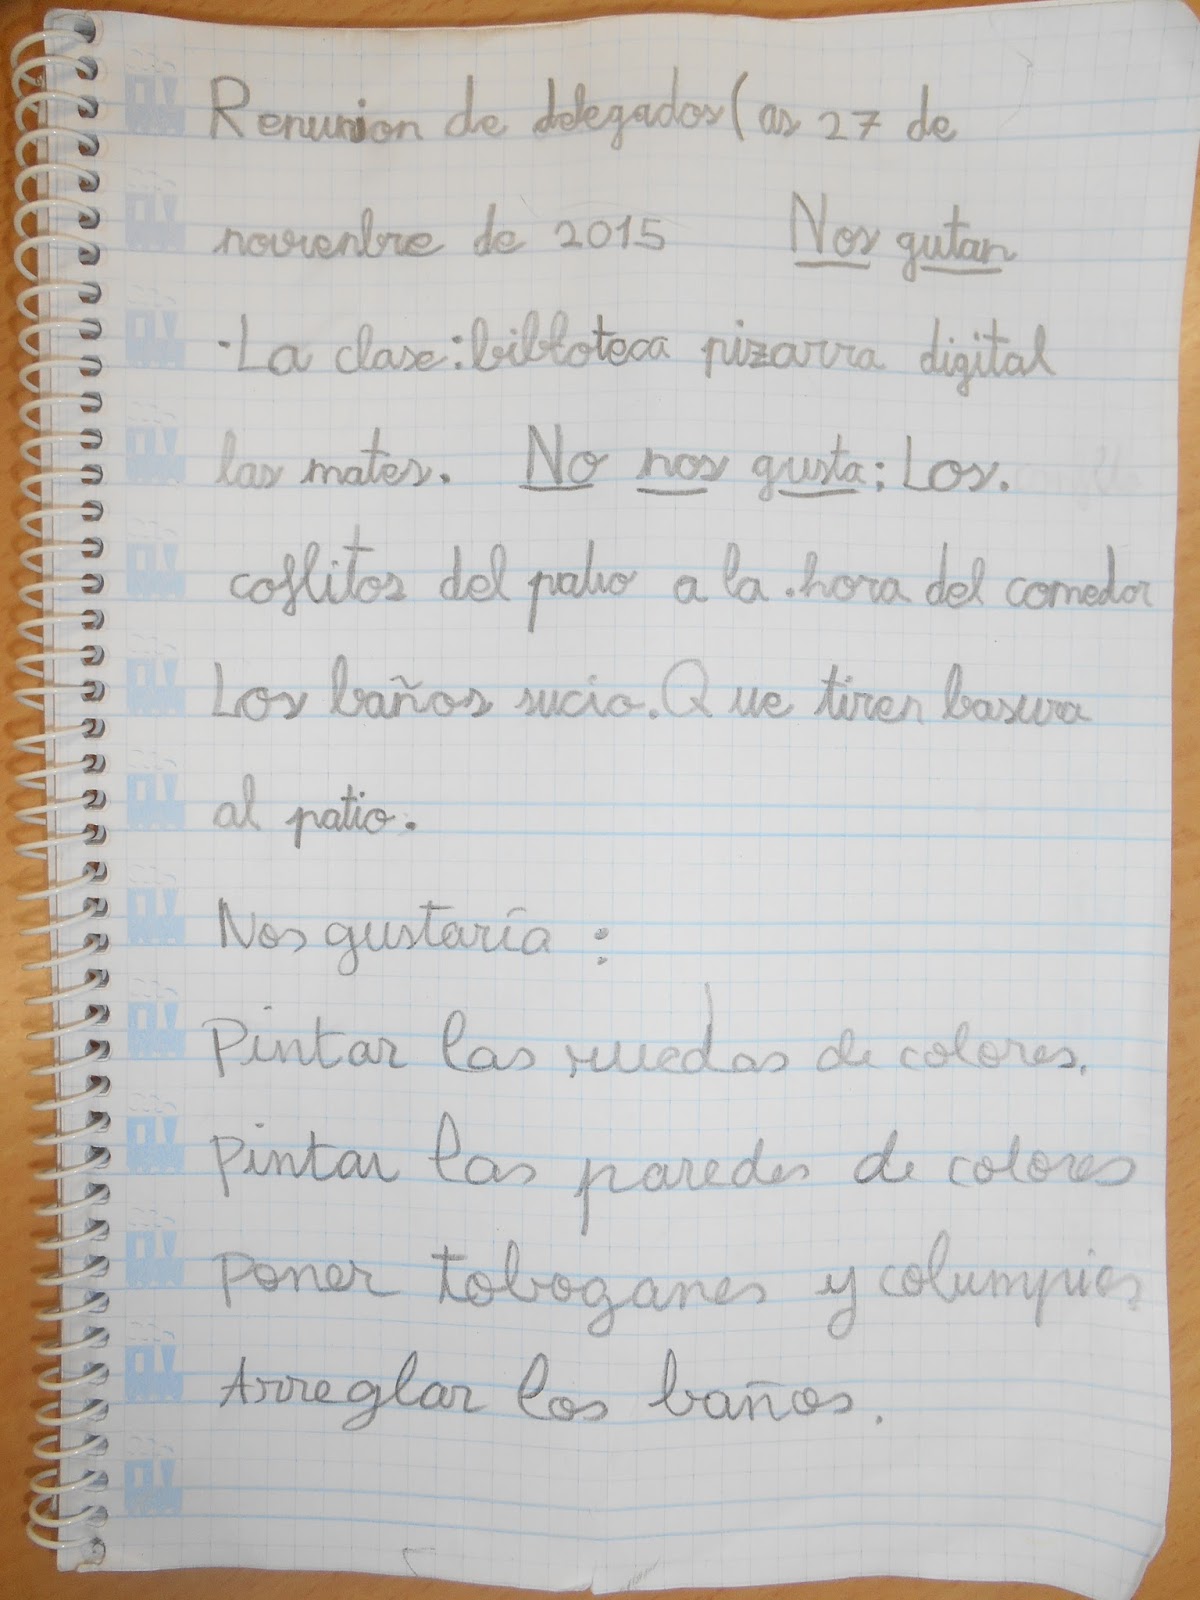 Renunion de delegados(as 27 de
novienbre de 2015 Nos gutan
·La clase:biblioteca pizarra digital
las mates. No nos gusta; Los.
coflitos del patio a la .hora del comedor
Los baños sucio. Que tiren basura
al patio.
Nos gustaría :
Pintar las ruedas de colores.
Pintar las paredes de colores
Poner toboganes y columpios
Arreglar los baños.